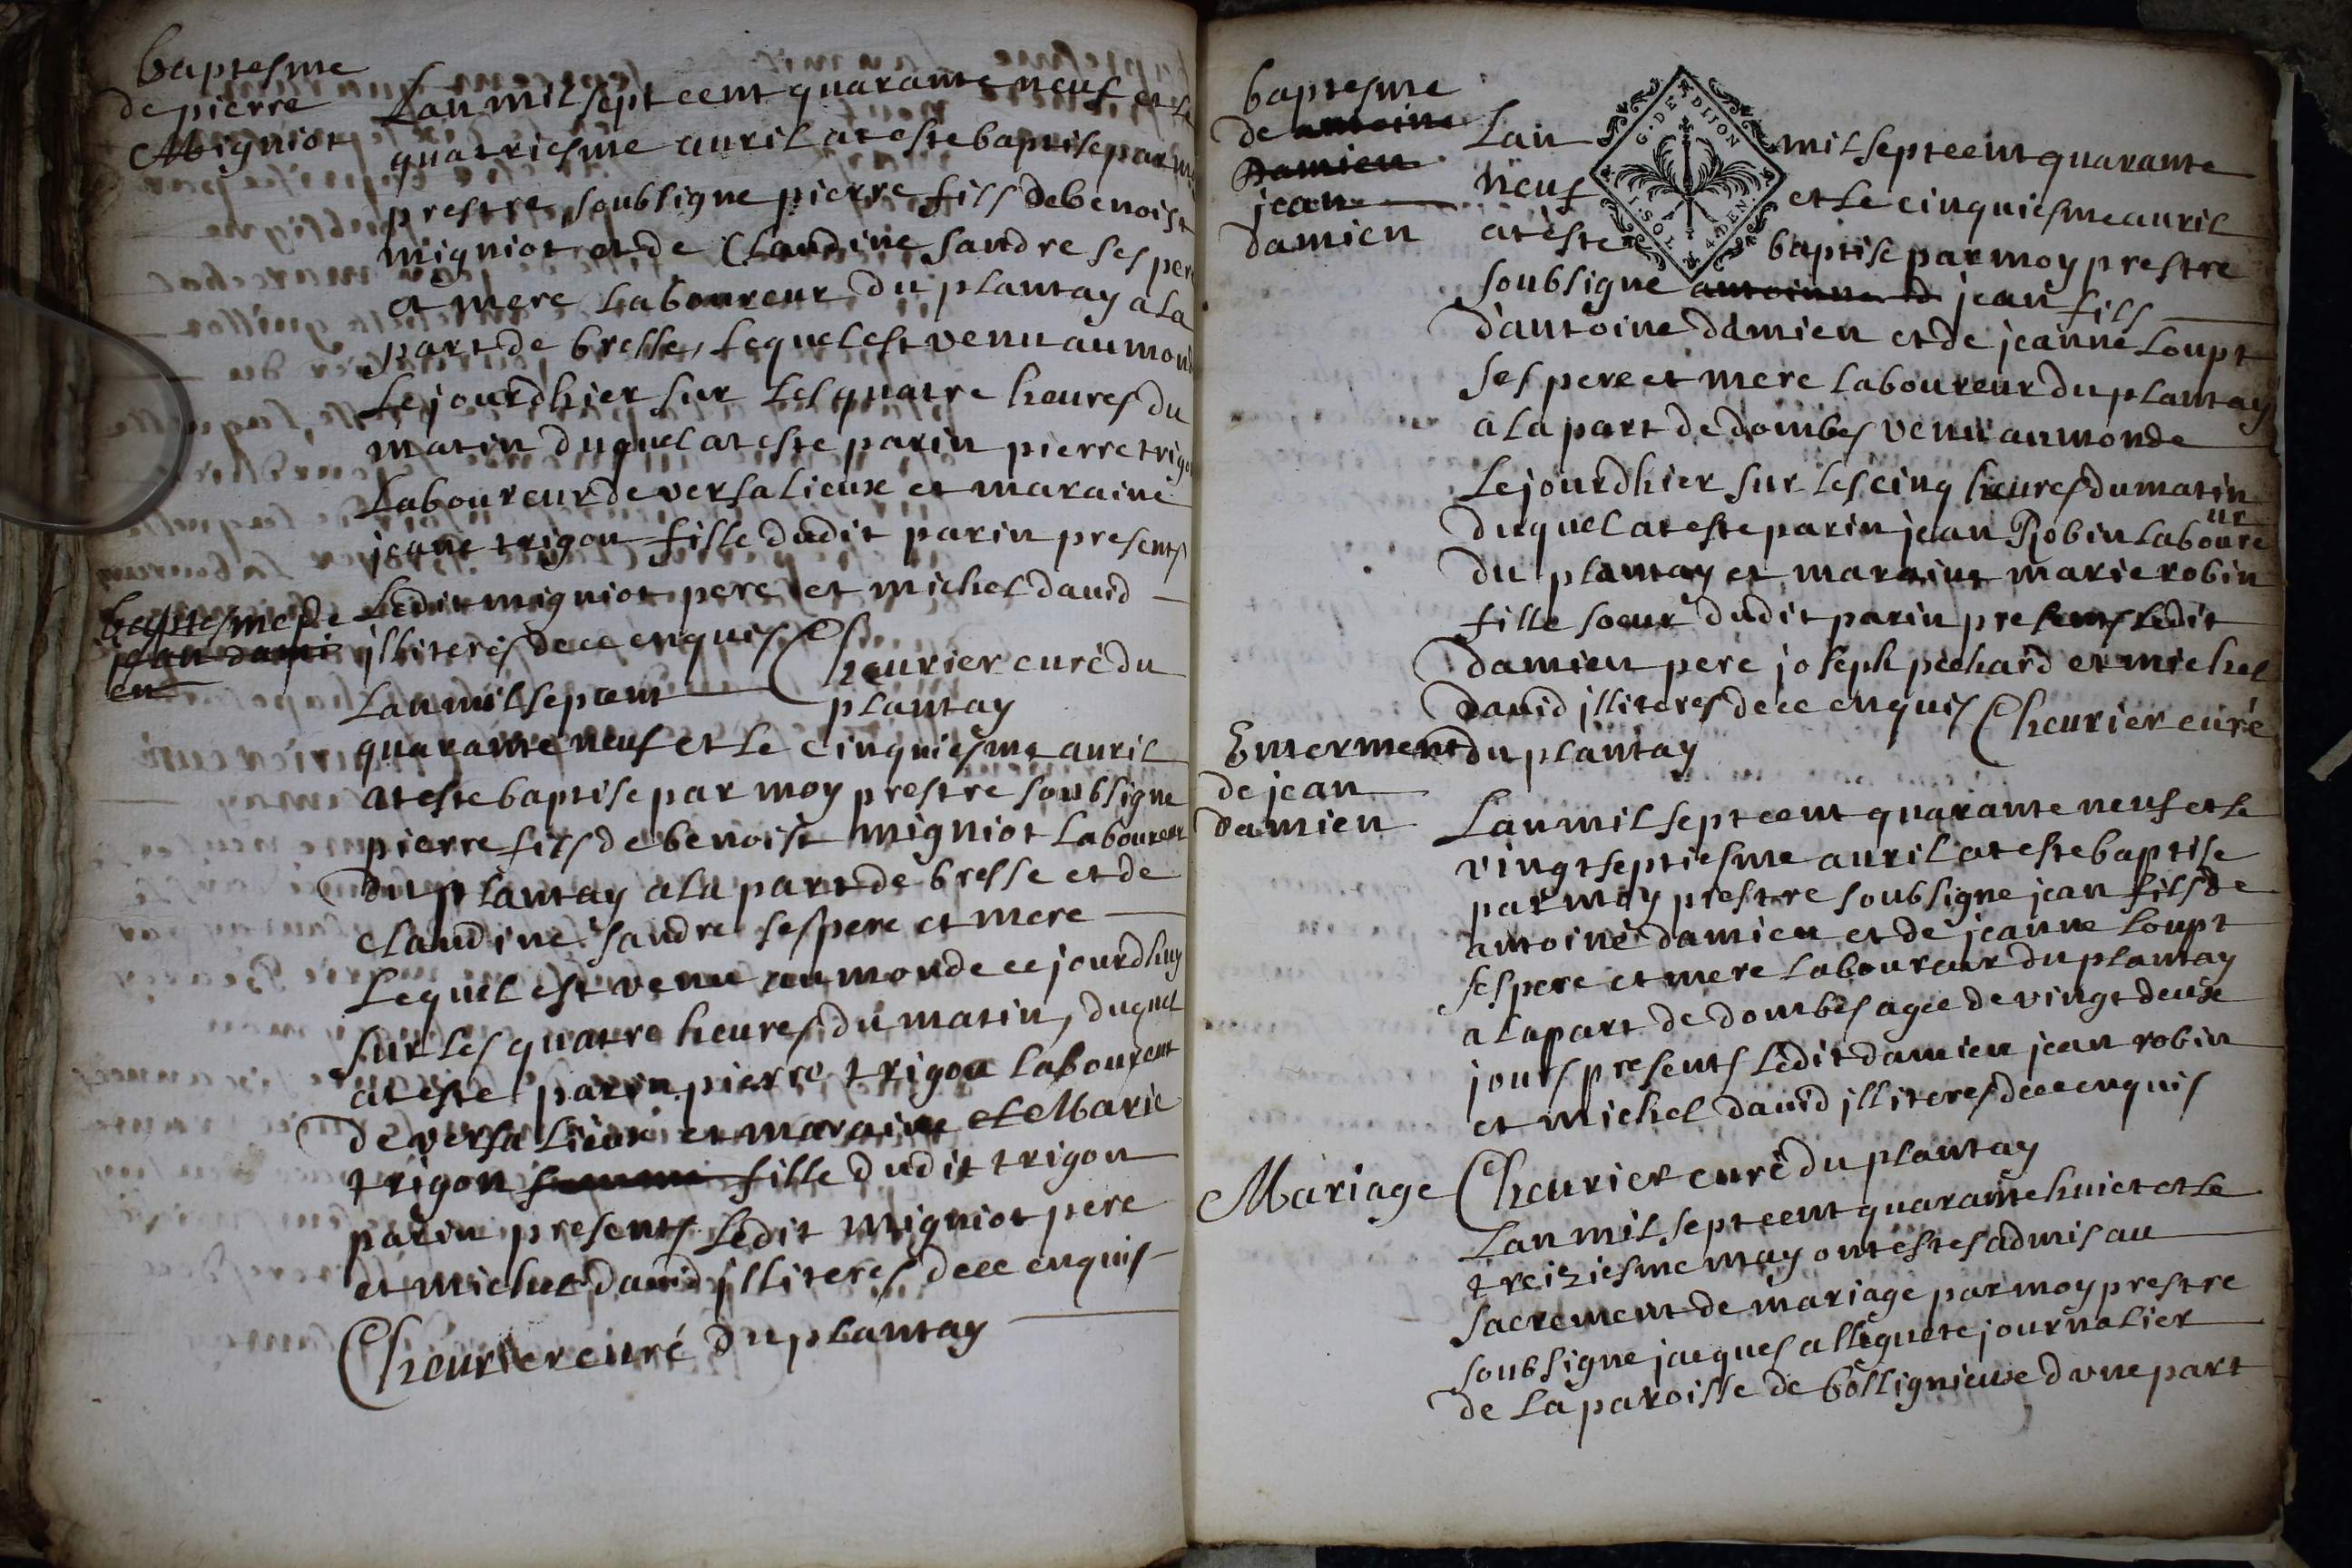 baptesme
de pierre
Migniot
Lan mil sept cent quarante neuf et le
quatriesme auril at este baptise par
prestre soubsigne pierre fils de benoist
migniot et de Claudine sandre ses per
et mere laboureur du plantay a la
part de bresse, lequel est venu au mon
le jourdhier sur les quatre heures du
matin duquel at este parin pierre trigo
laboureur de versalieux et maraine
jeane trigon fille dudit parin presents
ledit migniot pere et michel dauid
illiteres de ce enquis Cheurier curé du
plantay
baptesme de
jean dami
en
Lan mil sept cent
quarante neuf et le cinquiesme auril
at este baptise par moy prestre soubsigne
pierre fils de benoist migniot laboureur
du plantay a la part de bresse et de
claudine sandre ses pere et mere
lequel est venu au monde ce jourdhuy
sur les quatre heures du matin, duquel
at este parin pierre trigon laboureur
de versalieux et maraine et Marie
trigon femme fille dudit trigon
parin presents ledit Migniot pere
et michel dauid illiteres de ce enquis
Cheurier curé du plantay
baptesme
de antoine
Damien
jean
damien
G. DE DIJON
I. SOL 4 DEN.
Lan mil sept cent quarante
neuf et le cinquiesme auril
at este baptise par moy prestre
soubsigne jean fils
dantoine damien et de jeanne Loupt
ses pere et mere laboureur du plantay
a la part de dombes venu au monde
le jourdhier sur les cinq heures du matin
duquel at este parin jean Robin laboureur
du plantay et maraine marie robin
fille soeur dudit parin presents ledit
damien pere joseph pechard et michel
dauid illiteres de ce enquis Cheurier curé
du plantay
Enterment
de jean
damien
Lan mil sept cent quarante neuf et le
vingt septiesme auril at este baptise
par moy prestre soubsigne jean fils de
antoine damien et de jeanne Loupt
ses pere et mere laboureur du plantay
a la part de dombes agee de vingt deux
jours presents ledit damien jean robin
et michel dauid illiteres de ce enquis
Cheurier curé du plantay
Mariage
Lan mil sept cent quarante huict et le
treiziesme may ont estes admis au
sacrement de mariage par moy prestre
soubsigne jacques alleguete journalier
de la paroisse de bollignieux dune part